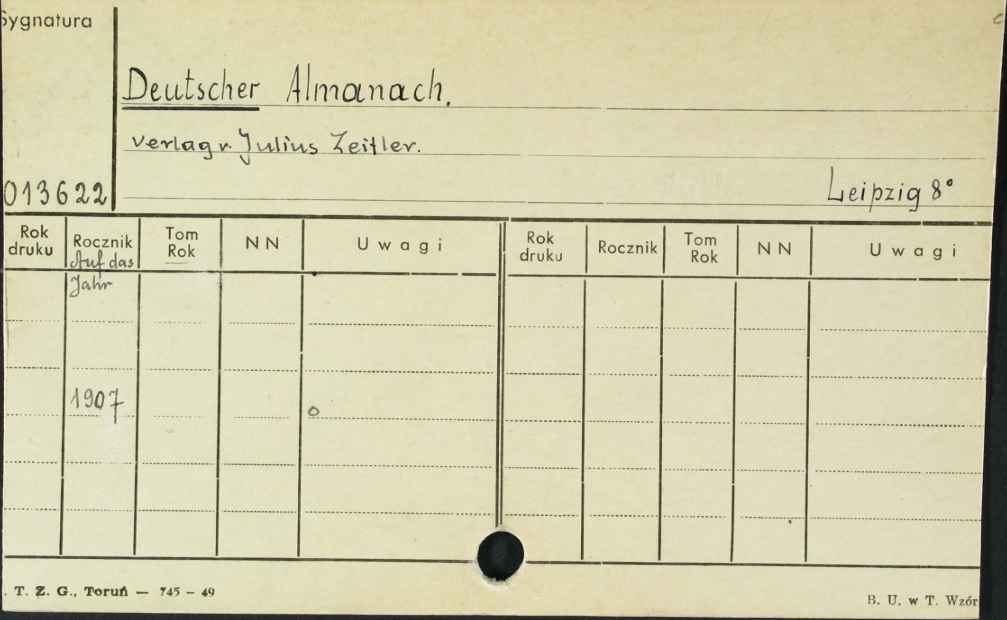 Sygnatura
Deutscher Almanach.
Verlag v. Julius Zeitler.
013622
Leipzig 8°
Rok druku Rocznik Tom Rok NN Uwagi Rok druku Rocznik Tom Rok NN Uwagi
Auf das
Jahr
1907
. T. Z. G., Toruń — 745 — 49
B. U. w T. Wzór